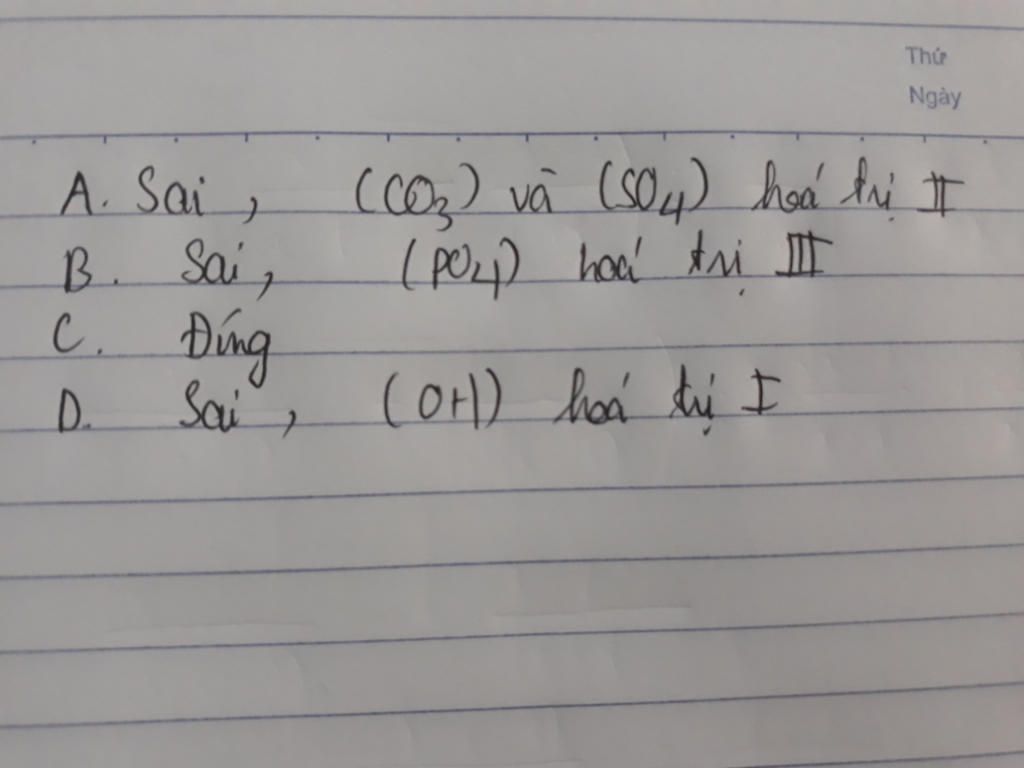 Thứ
Ngày
A. Sai, (CO₃) và (SO₄) hoá trị II
B. Sai, (PO₄) hoá trị III
C. Đíng
D. Sai, (OH) hoá trị I